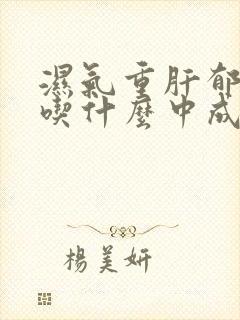 濕氣重肝郁
喫什麼中成
楊美妍